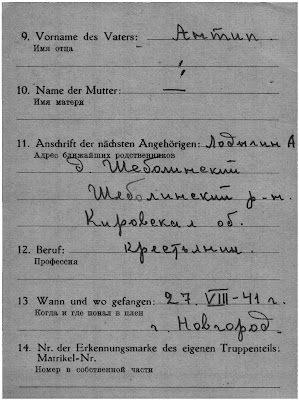 9. Vorname des Vaters: Антип
Имя отца
10. Name der Mutter: —
Имя матери
11. Anschrift der nächsten Angehörigen: Лодыгин А
Адрес ближайших родственников
д. Шеболинский
Шеболинский р-н.
Кировская об.
12. Beruf: Крестьянин.
Профессия
13 Wann und wo gefangen: 27. VIII-41 г.
Когда и где попал в плен
г. Новгород.
14. Nr. der Erkennungsmarke des eigenen Truppenteils:
Matrikel-Nr.
Номер в собственной части